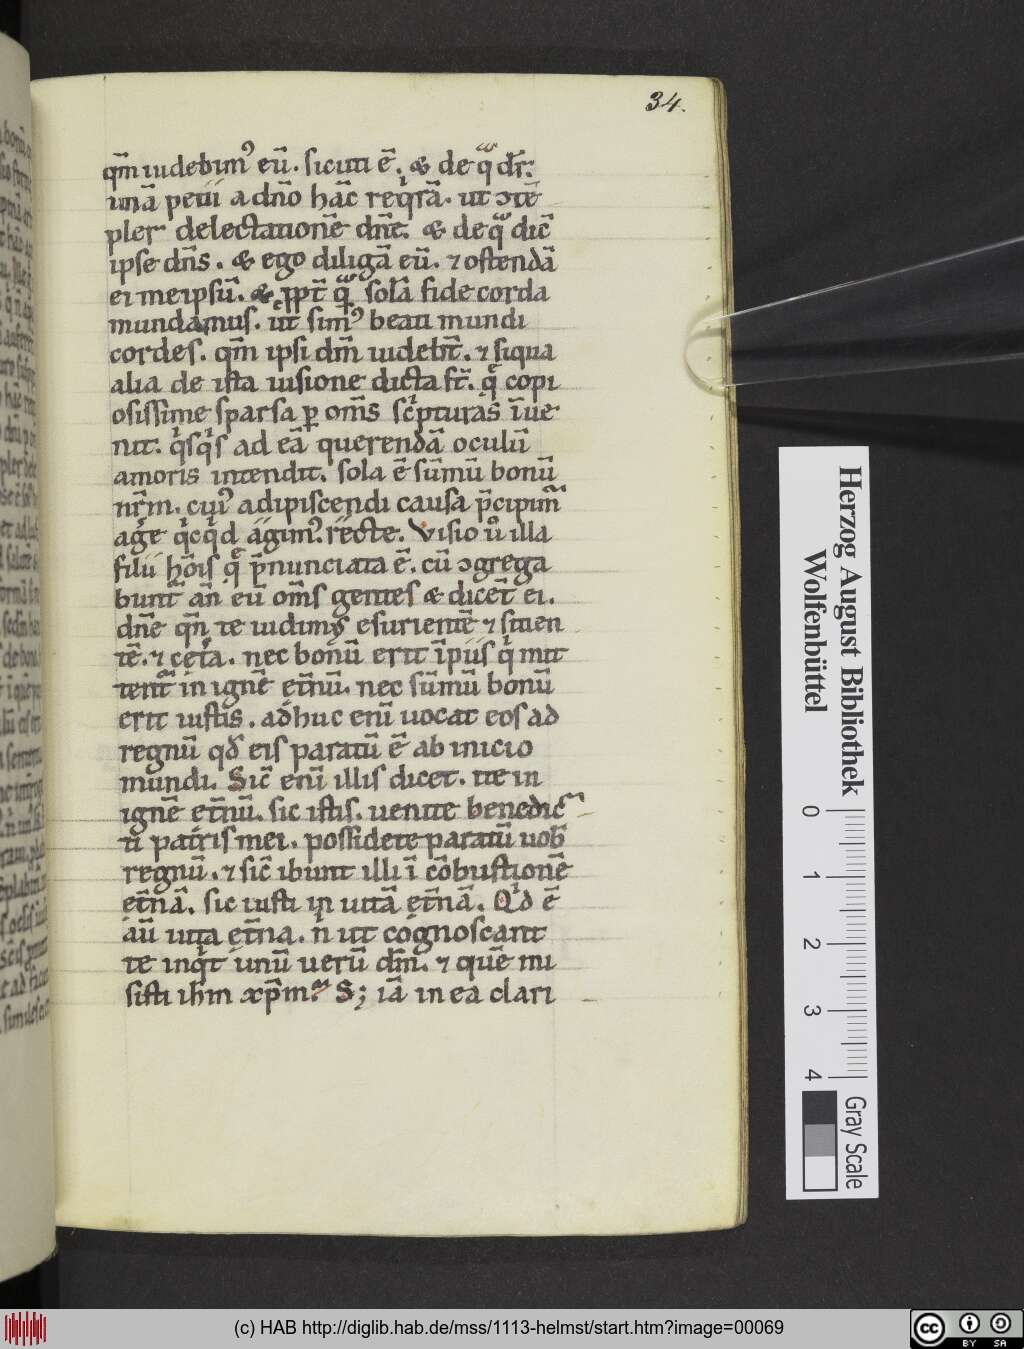 34.
qm̄ uidebimꝰ eū. sicuti ē. & de qͣ dr̄.
unā petii a dn̄o hāc reqͥrā. ut ↄtē
pler delectationē dn̄i. & de qͣ dic̄
ipse dn̄s. & ego diligā eū. ⁊ ostendā
ei meipsū. & ꝓpt̄ qͣ sola fide corda
mundamus. ut simꝰ beati mundi
cordes. qm̄ ipsi dm̄ uidebt̄. ⁊ siqua
alia de ista uisione dicta st̄. q̨ copi
osissime sparsa ꝑ om̄s scͥpturas īue
nit. qͥsqͥs ad eā querendā oculū
amoris intendit. sola ē sūmū bonū
nr̄m. cuiꝰ adipiscendi causa p̄cipim̄
age qͥcqͥd agimꝰ. recte. Visio ů illa
filii hōis q̨ p̄nunciata ē. cū ↄgrega
bunt̄ an̄ eū om̄s gentes & dicēt ei.
dn̄e qn̄ te uidimꝰ esuriente ⁊ sitien
tē. ⁊ cetā. nec bonū erit īpiis qͥ mit
tent̄ in ignē et̄nū. nec sūmū bonū
erit iustis. adhuc enī uocat eos ad
regnū qd̄ eis paratū ē ab inicio
mundi. Sic̄ enī illis dicet. ite in
ignē et̄nū. sic istis. uenite benedic
ti patris mei. possidete paratū uob̄
regnū. ⁊ sic̄ ibunt illi ī cōbustionē
et̄nā. sic iusti in uitā et̄nā. Qͥd ē
aū uita et̄na. n̄ ut cognoscant
te inqͥt unū uerū dm̄. ⁊ quē mi
sisti ihm xp̄m. S; iā in ea clari
Herzog August Bibliothek
Wolfenbüttel
0 1 2 3 4
Gray Scale
(c) HAB http://diglib.hab.de/mss/1113-helmst/start.htm?image=00069
cc BY SA